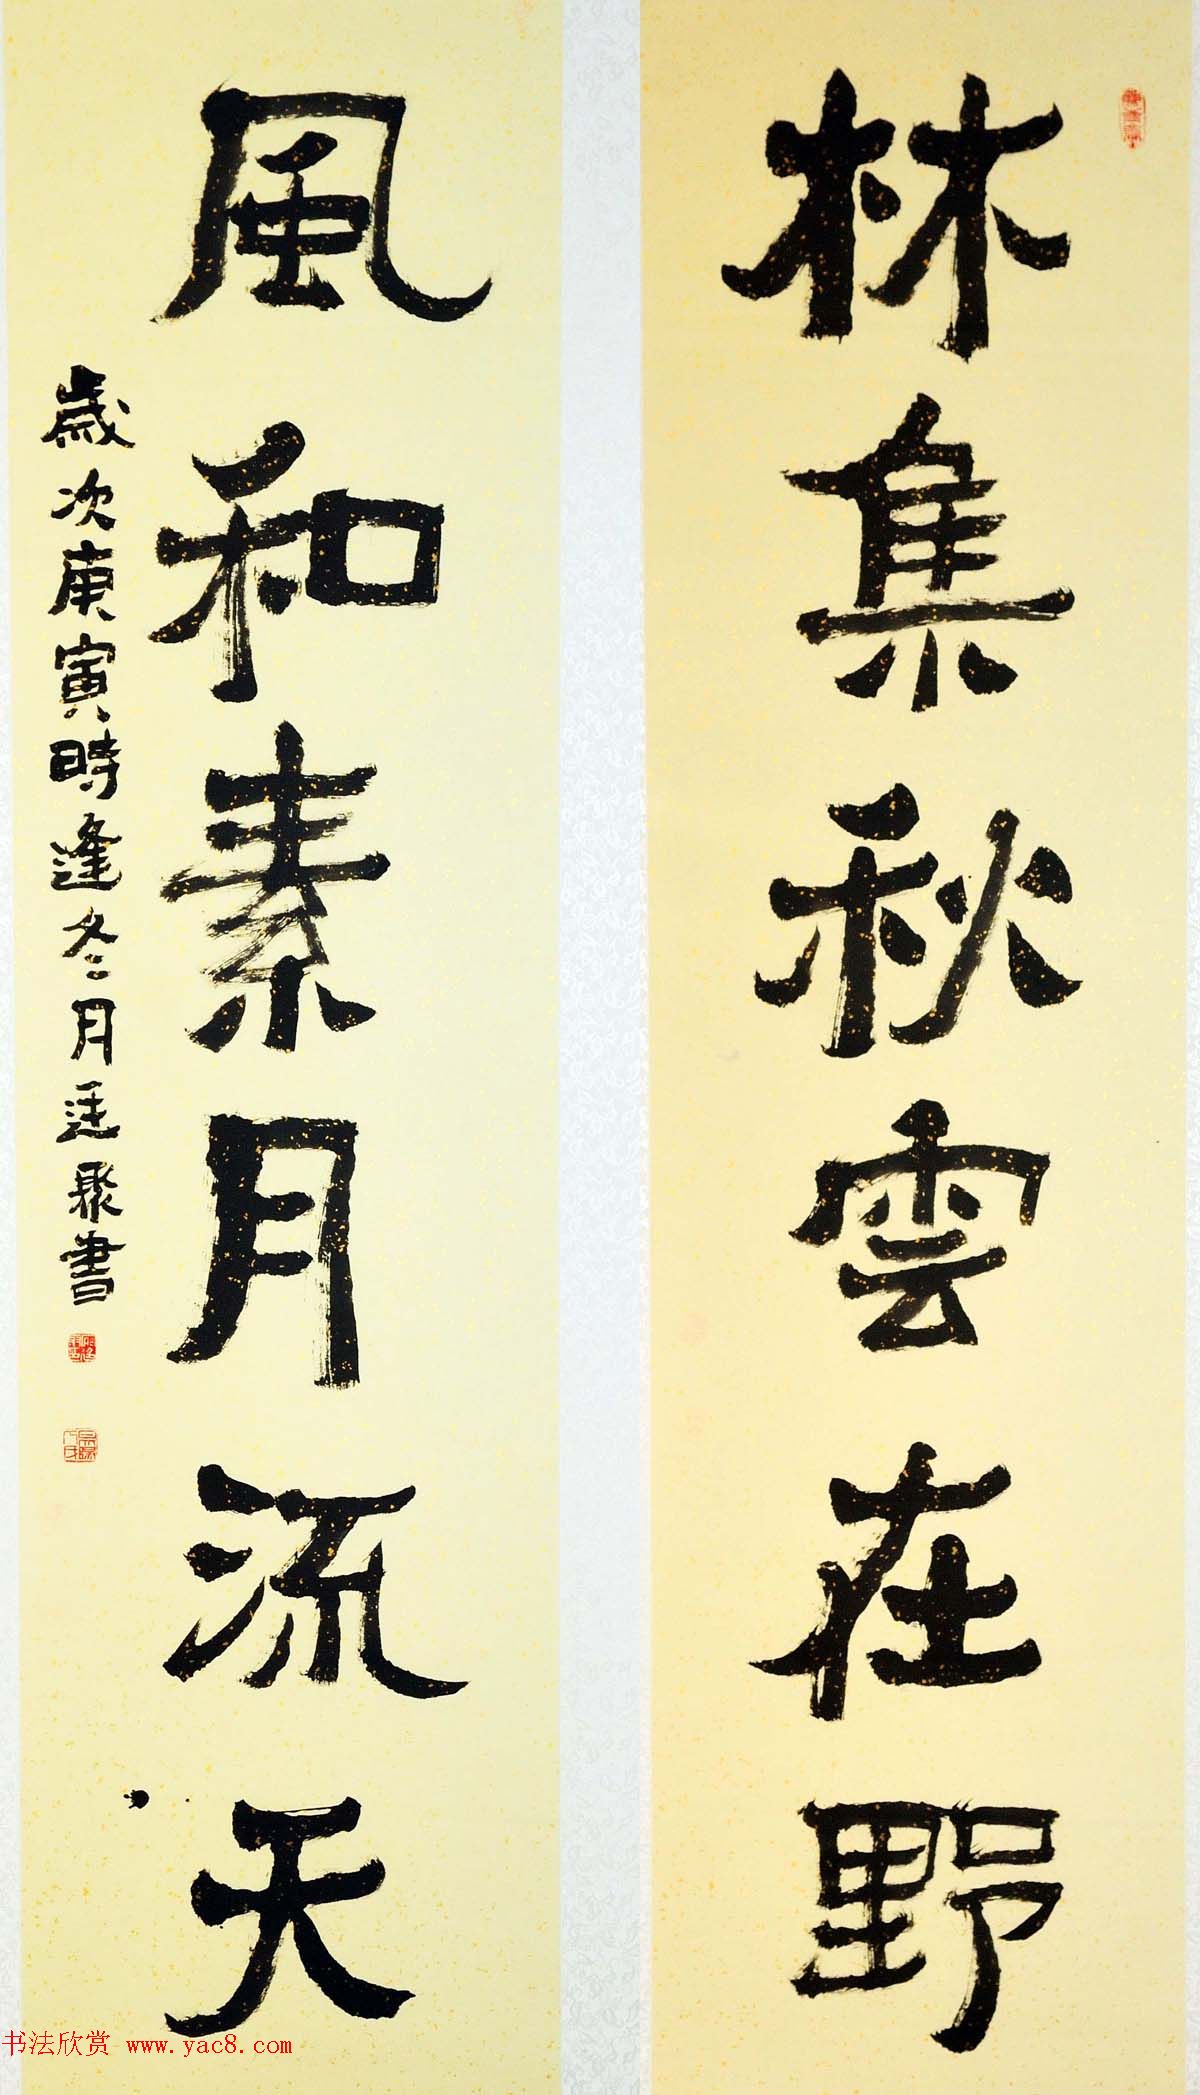 林集秋雲在野
風和素月流天
歲次庚寅時逢冬月廷聚書
书法欣赏 www.yac8.com